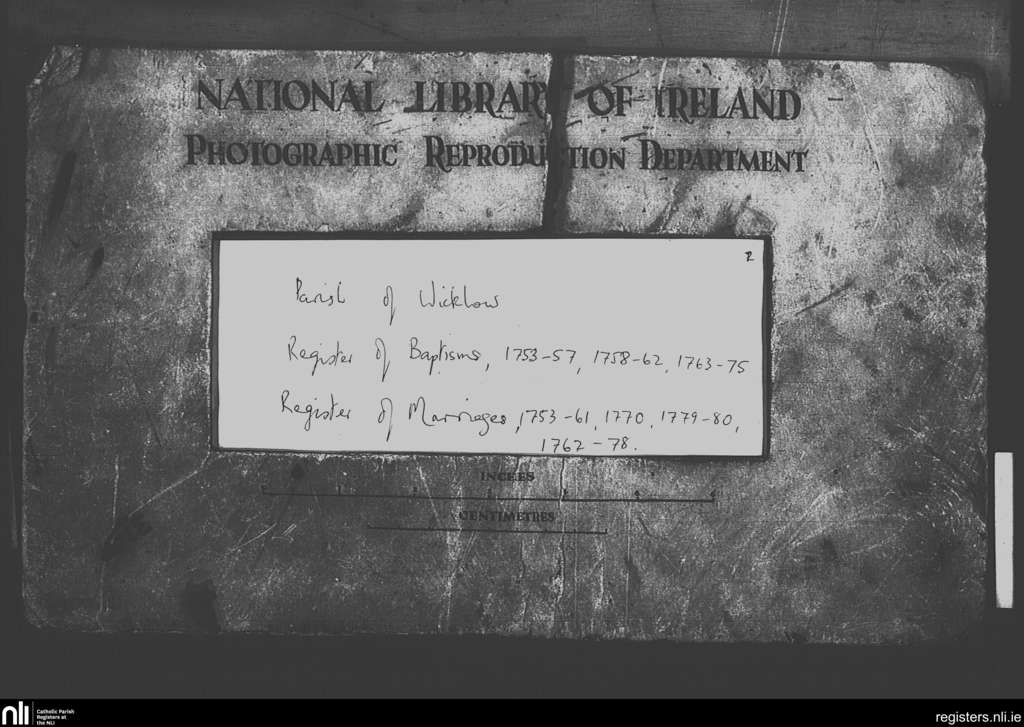 NATIONAL LIBRARY OF IRELAND
PHOTOGRAPHIC REPRODUCTION DEPARTMENT
2
Parish of Wicklow
Register of Baptisms, 1753-57, 1758-62, 1763-75
Register of Marriages, 1753-61, 1770, 1779-80,
1762-78.
INCHES
CENTIMETRES
nli
Catholic Parish
Registers at
the NLI
registers.nli.ie